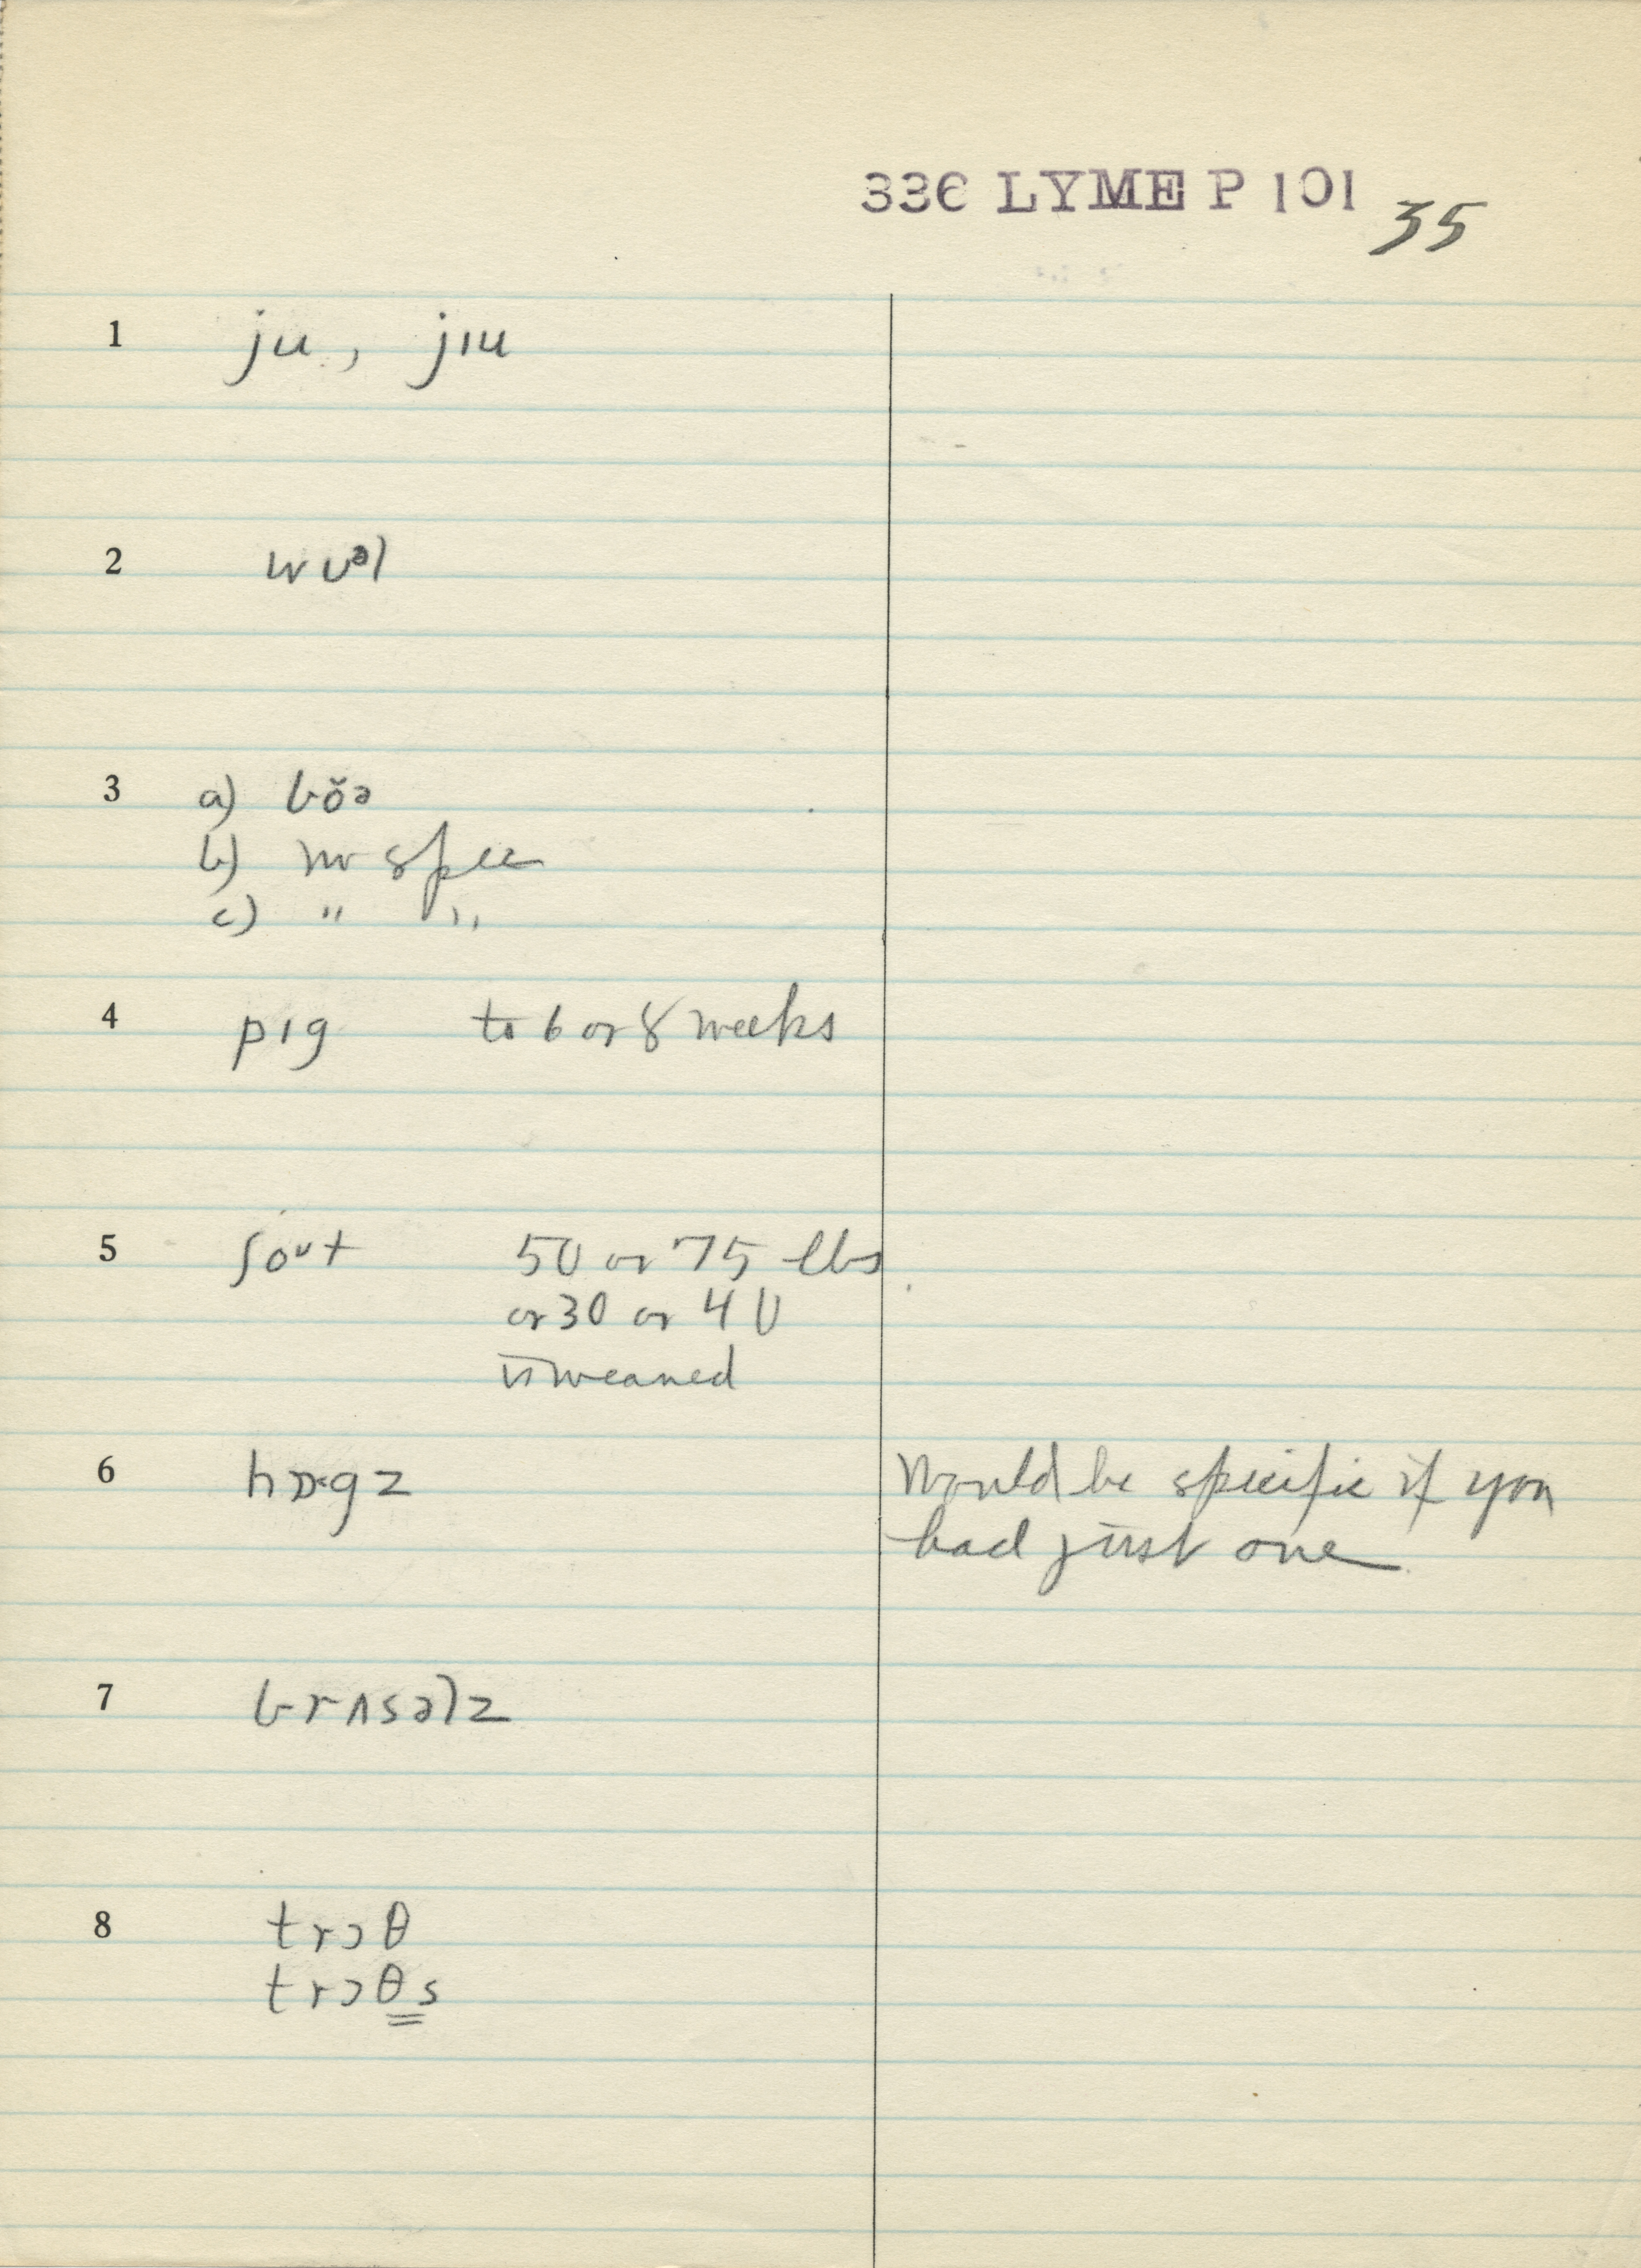 336 LYME P 101 35
1 ju, jɪu
2 wʊᵊl
3 a) bŏə
b) no spec
c) " "
4 pɪg to 6 or 8 weeks
5 ʃoᴜt 50 or 75 lbs
or 30 or 40
unweaned
6 hɒ·gz Would be specific if you
had just one
7 brʌsəlz
8 trɔθ
trɔθs